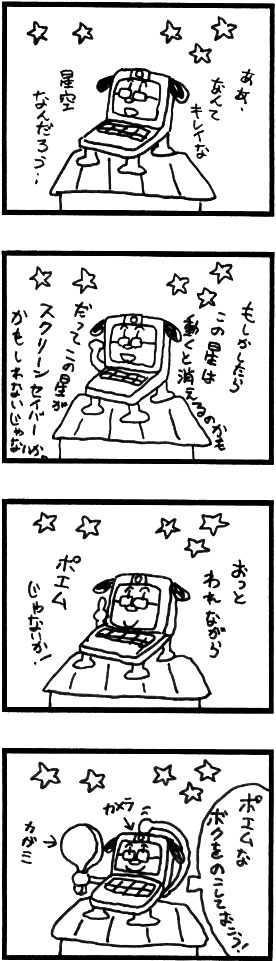 ああ、
なんて
キレイな
星空
なんだろう…
もしかしたら
この星は
動くと消えるのかも
だってこの星が
スクリーンセイバーか
かもしれないじゃないか。
おっと
われながら
ポエム
じゃないか!
ポエムな
ボクをのこしておこう!
カメラ
カガミ